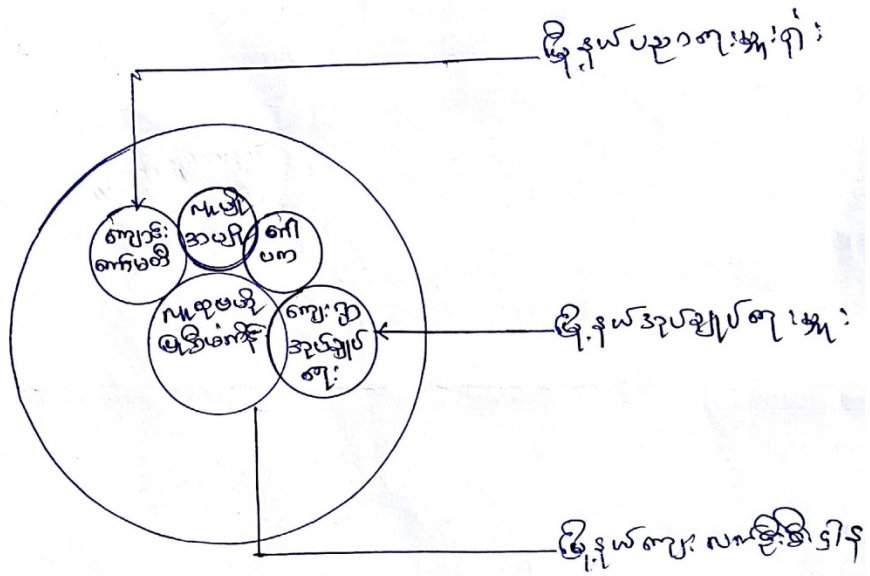 မြို့နယ်ပညာရေးမှူးရုံး
လူမျိုး
ကျောင်း
ကော်မတီ
ပက
လူထုဗဟို
ပြုစီမံကိန်း
ကျေးရွာ
အုပ်ချုပ်
ရေး
မြို့နယ်အုပ်ချုပ်ရေးမှူး
မြို့နယ်ကျေးလက်ဦးစီးဌာန